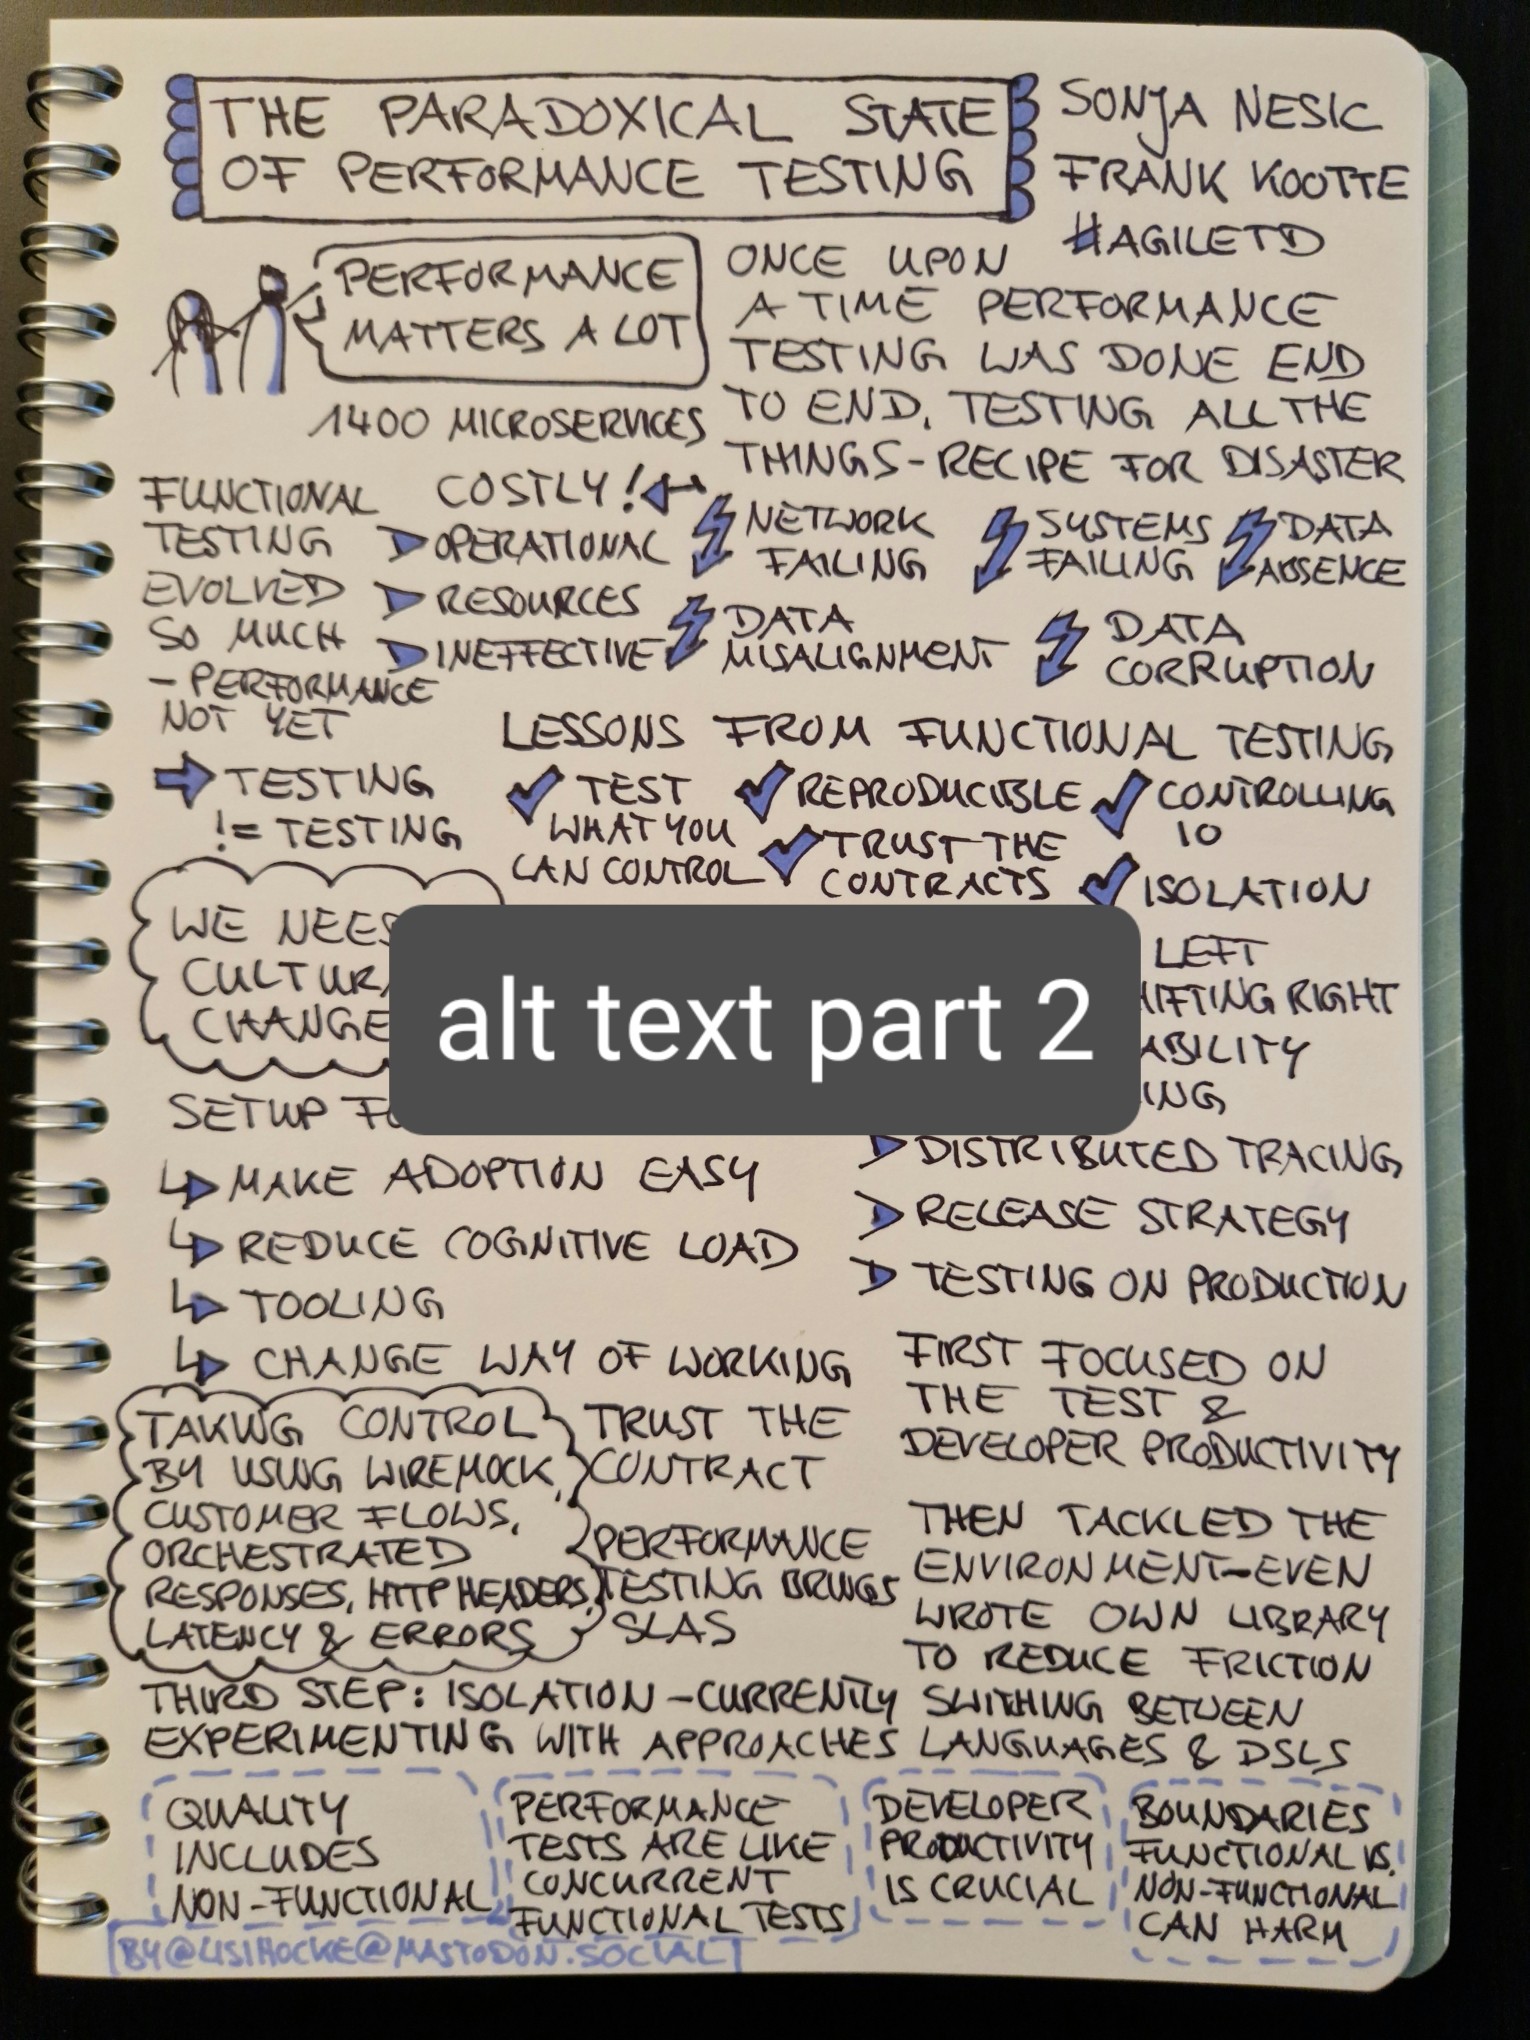 THE PARADOXICAL STATE
OF PERFORMANCE TESTING
SONJA NESIC
FRANK KOOTTE
#AGILETD
PERFORMANCE
MATTERS A LOT
1400 MICROSERVICES
ONCE UPON
A TIME PERFORMANCE
TESTING WAS DONE END
TO END, TESTING ALL THE
THINGS - RECIPE FOR DISASTER
FUNCTIONAL
TESTING
EVOLVED
SO MUCH
- PERFORMANCE
NOT YET
COSTLY!
OPERATIONAL
RESOURCES
INEFFECTIVE
NETWORK
FAILING
SYSTEMS
FAILING
DATA
ABSENCE
DATA
MISALIGNMENT
DATA
CORRUPTION
TESTING
!= TESTING
LESSONS FROM FUNCTIONAL TESTING
TEST
WHAT YOU
CAN CONTROL
REPRODUCIBLE
TRUST THE
CONTRACTS
CONTROLLING
IO
ISOLATION
WE
CHANGE
alt text part 2
LEFT
RIGHT
SETUP
MAKE ADOPTION EASY
REDUCE COGNITIVE LOAD
TOOLING
CHANGE WAY OF WORKING
DISTRIBUTED TRACING
RELEASE STRATEGY
TESTING ON PRODUCTION
TAKING CONTROL
BY USING WIREMOCK,
CUSTOMER FLOWS,
ORCHESTRATED
RESPONSES, HTTP HEADERS,
LATENCY & ERRORS
TRUST THE
CONTRACT
PERFORMANCE
TESTING BRINGS
SLAS
FIRST FOCUSED ON
THE TEST &
DEVELOPER PRODUCTIVITY
THEN TACKLED THE
ENVIRONMENT - EVEN
WROTE OWN LIBRARY
TO REDUCE FRICTION
THIRD STEP: ISOLATION - CURRENTLY SWITHING BETWEEN
EXPERIMENTING WITH APPROACHES LANGUAGES & DSLS
QUALITY
INCLUDES
NON-FUNCTIONAL
PERFORMANCE
TESTS ARE LIKE
CONCURRENT
FUNCTIONAL TESTS
DEVELOPER
PRODUCTIVITY
IS CRUCIAL
BOUNDARIES
FUNCTIONAL VS.
NON-FUNCTIONAL
CAN HARM
BY @LISIHOCKE@MASTODON.SOCIAL